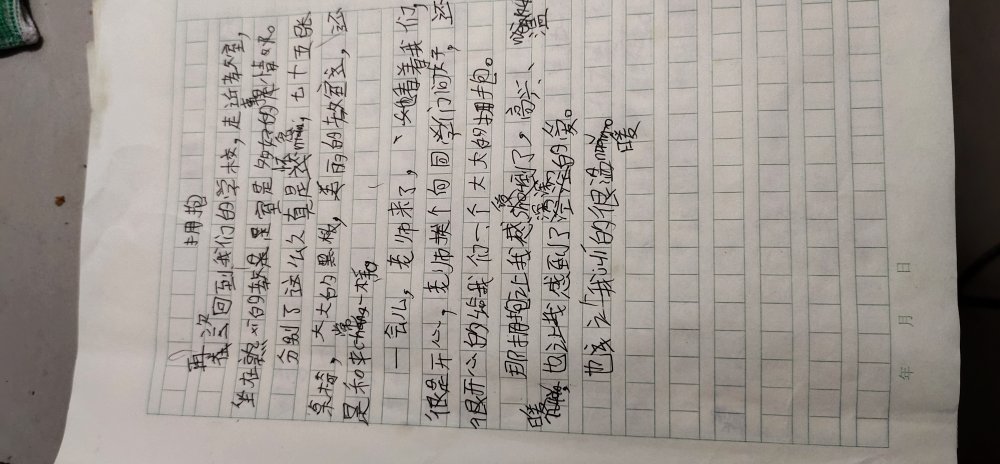 拥抱
再次回到我们的学校,走近教室,
坐在熟xi的教室里是多好的事情呀。
分别了这么久真是,七十五张
桌椅,大大的黑板,美丽的教室,还
是和平常一样。
一会儿,老师来了,她看着我们,
很是开心,老师挨个向同学们问好,还
很开心的给我们一个大大的拥抱。
那拥抱让我感受到了,高兴、温
暖,也让我感到了满满的爱。
也让我的很温暖。